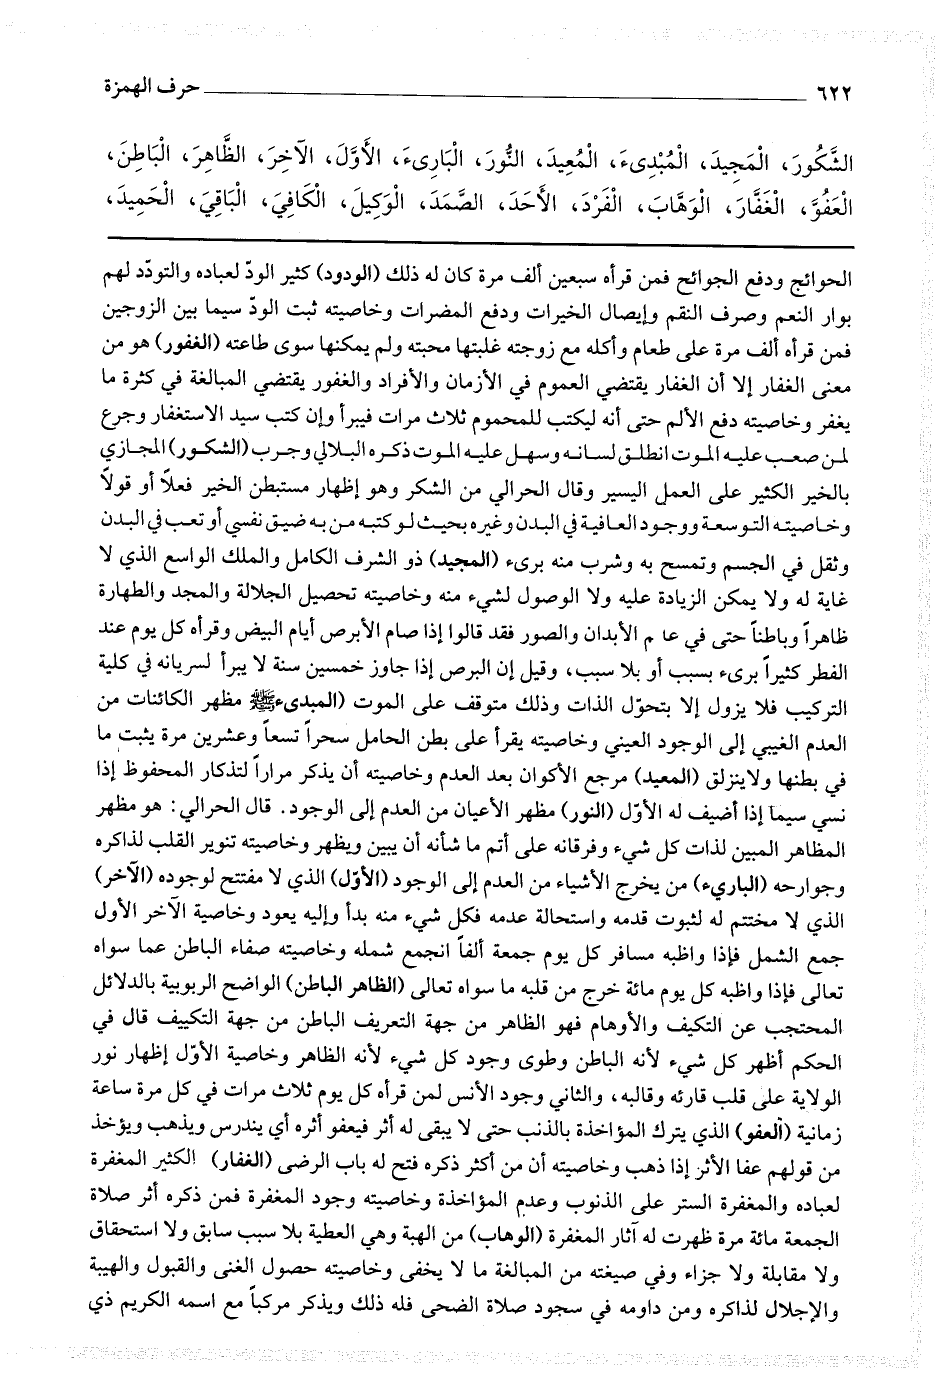 ٦٢٢ حرف الهمزة
الشَّكُورَ، الْمَجِيدَ، الْمُبْدِىءَ، الْمُعِيدَ، النُّورَ، الْبَارِىءَ، الأَوَّلَ، الآخِرَ، الظَّاهِرَ، الْبَاطِنَ،
الْعَفُوَّ، الْغَفَّارَ، الْوَهَّابَ، الْفَرْدَ، الأَحَدَ، الصَّمَدَ، الْوَكِيلَ، الْكَافِيَ، الْبَاقِيَ، الْحَمِيدَ،
الحوائج ودفع الجوائح فمن قرأه سبعين ألف مرة كان له ذلك (الودود) كثير الودّ لعباده والتودّد لهم
بوار النعم وصرف النقم وإيصال الخيرات ودفع المضرات وخاصيته ثبت الودّ سيما بين الزوجين
فمن قرأه ألف مرة على طعام وأكله مع زوجته غلبتها محبته ولم يمكنها سوى طاعته (الغفور) هو من
معنى الغفار إلا أن الغفار يقتضي العموم في الأزمان والأفراد والغفور يقتضي المبالغة في كثرة ما
يغفر وخاصيته دفع الألم حتى أنه ليكتب للمحموم ثلاث مرات فيبرأ وإن كتب سيد الاستغفار وجرع
لمن صعب عليه الموت انطلق لسانه وسهل عليه الموت ذكره البلالي وجرب (الشكور) المجازي
بالخير الكثير على العمل اليسير وقال الحرالي من الشكر وهو إظهار مستبطن الخير فعلاً أو قولاً
وخاصيته التوسعة ووجود العافية في البدن وغيره بحيث لو كتبه من به ضيق نفسي أو تعب في البدن
وثقل في الجسم وتمسح به وشرب منه برىء (المجيد) ذو الشرف الكامل والملك الواسع الذي لا
غاية له ولا يمكن الزيادة عليه ولا الوصول لشيء منه وخاصيته تحصيل الجلالة والمجد والطهارة
ظاهراً وباطناً حتى في عا م الأبدان والصور فقد قالوا إذا صام الأبرص أيام البيض وقرأه كل يوم عند
الفطر كثيراً برىء بسبب أو بلا سبب، وقيل إن البرص إذا جاوز خمسين سنة لا يبرأ لسريانه في كلية
التركيب فلا يزول إلا بتحوّل الذات وذلك متوقف على الموت (المبدىءﷺ مظهر الكائنات من
العدم الغيبي إلى الوجود العيني وخاصيته يقرأ على بطن الحامل سحراً تسعاً وعشرين مرة يثبت ما
في بطنها ولاينزلق (المعيد) مرجع الأكوان بعد العدم وخاصيته أن يذكر مراراً لتذكار المحفوظ إذا
نسي سيما إذا أضيف له الأوّل (النور) مظهر الأعيان من العدم إلى الوجود. قال الحرالي: هو مظهر
المظاهر المبين لذات كل شيء وفرقانه على أتم ما شأنه أن يبين ويظهر وخاصيته تنوير القلب لذاكره
وجوارحه (الباريء) من يخرج الأشياء من العدم إلى الوجود (الأوّل) الذي لا مفتتح لوجوده (الآخر)
الذي لا مختتم له لثبوت قدمه واستحالة عدمه فكل شيء منه بدأ وإليه يعود وخاصية الآخر الأول
جمع الشمل فإذا واظبه مسافر كل يوم جمعة ألفاً انجمع شمله وخاصيته صفاء الباطن عما سواه
تعالى فإذا واظبه كل يوم مائة خرج من قلبه ما سواه تعالى (الظاهر الباطن) الواضح الربوبية بالدلائل
المحتجب عن التكيف والأوهام فهو الظاهر من جهة التعريف الباطن من جهة التكييف قال في
الحكم أظهر كل شيء لأنه الباطن وطوى وجود كل شيء لأنه الظاهر وخاصية الأوّل إظهار نور
الولاية على قلب قارئه وقالبه، والثاني وجود الأنس لمن قرأه كل يوم ثلاث مرات في كل مرة ساعة
زمانية (العفو) الذي يترك المؤاخذة بالذنب حتى لا يبقى له أثر فيعفو أثره أي يندرس ويذهب ويؤخذ
من قولهم عفا الأثر إذا ذهب وخاصيته أن من أكثر ذكره فتح له باب الرضى (الغفار) الكثير المغفرة
لعباده والمغفرة الستر على الذنوب وعدم المؤاخذة وخاصيته وجود المغفرة فمن ذكره أثر صلاة
الجمعة مائة مرة ظهرت له آثار المغفرة (الوهاب) من الهبة وهي العطية بلا سبب سابق ولا استحقاق
ولا مقابلة ولا جزاء وفي صيغته من المبالغة ما لا يخفى وخاصيته حصول الغنى والقبول والهيبة
والإجلال لذاكره ومن داومه في سجود صلاة الضحى فله ذلك ويذكر مركباً مع اسمه الكريم ذي